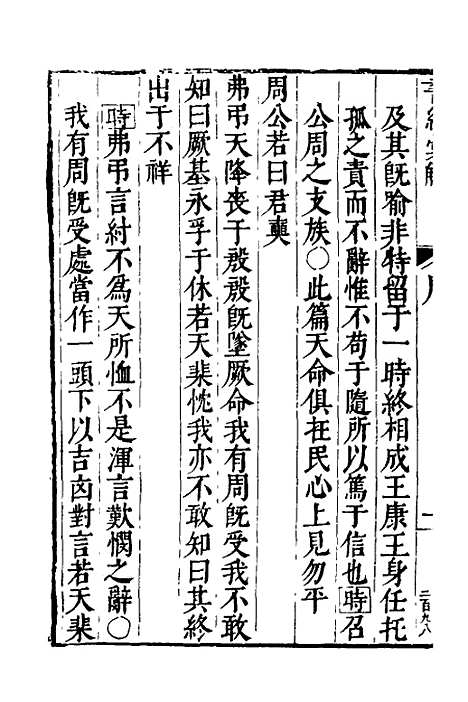 及其旣喻非特留于一時終相成王康王身任托
孤之責而不辭惟不苟于隨所以篤于信也時召
公周之支族〇此篇天命俱在民心上見勿平
周公若曰君奭
弗弔天降喪于殷殷旣墜厥命我有周旣受我不敢
知曰厥基永孚于休若天棐忱我亦不敢知曰其終
出于不祥
時弗弔言紂不爲天所恤不是渾言歎憫之辭〇
我有周旣受處當作一頭下以吉凶對言若天棐
二百九八